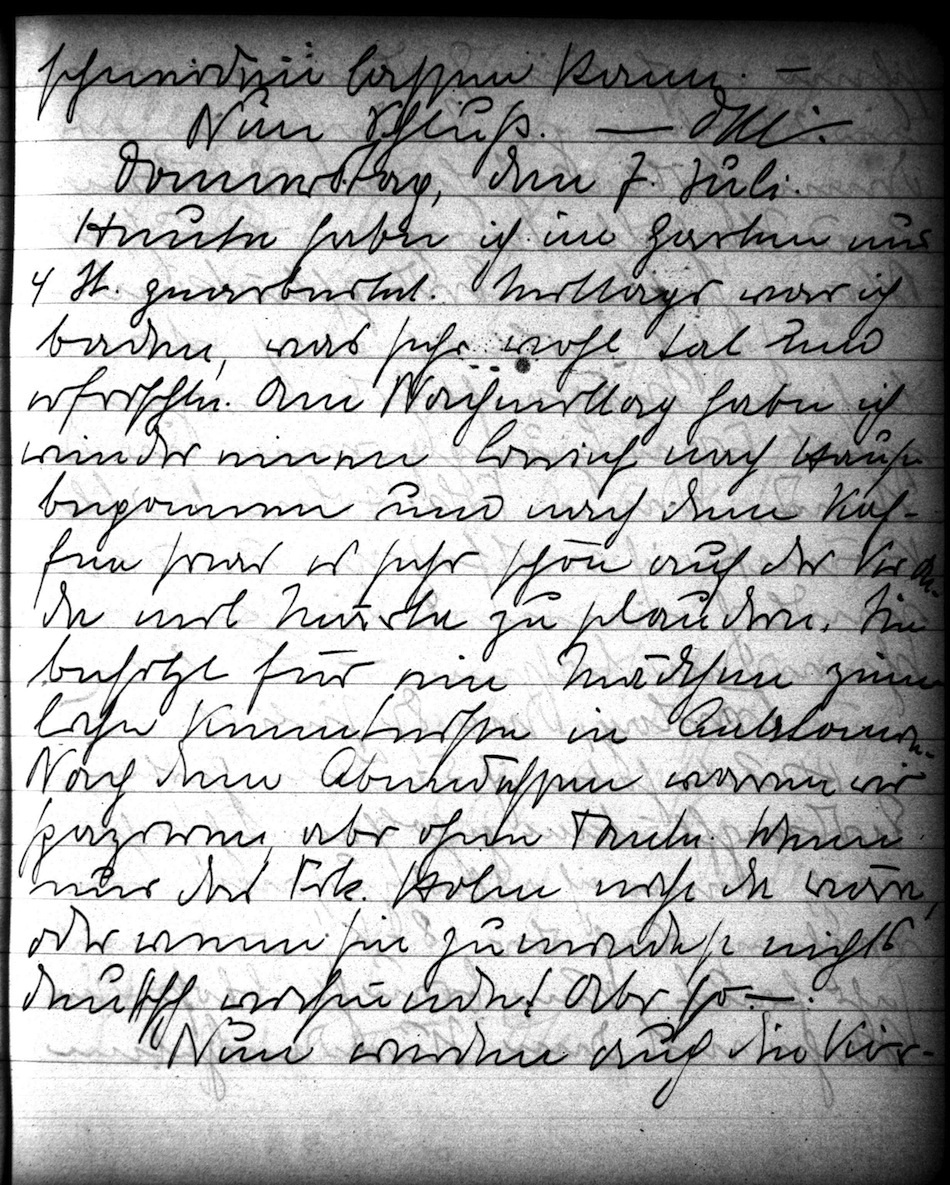 schneiden lassen kann. —
Nun Schluß. —
Donnerstag, den 7. Juli.
Heute habe ich im Garten nur
4 St. gearbeitet. Mittags war ich
baden, was sehr wohl tat und
erfrischte. Am Nachmittag habe ich
wieder einen Bericht nach Hause
begonnen und nach dem Kaf-
fee war es sehr schön auf der Veran-
da mit Märta zu plaudern. Sie
besitzt für ein Mädchen ziem
liche Kenntnisse in
Nach dem Abendessen waren wir
spazieren, aber ohne Tante. Wenn
nur das Frk. Holm nicht da wäre,
oder wenn sie zumindest nichts
deutsch verstünde! Aber so —.
Nun werden auch die Kir-